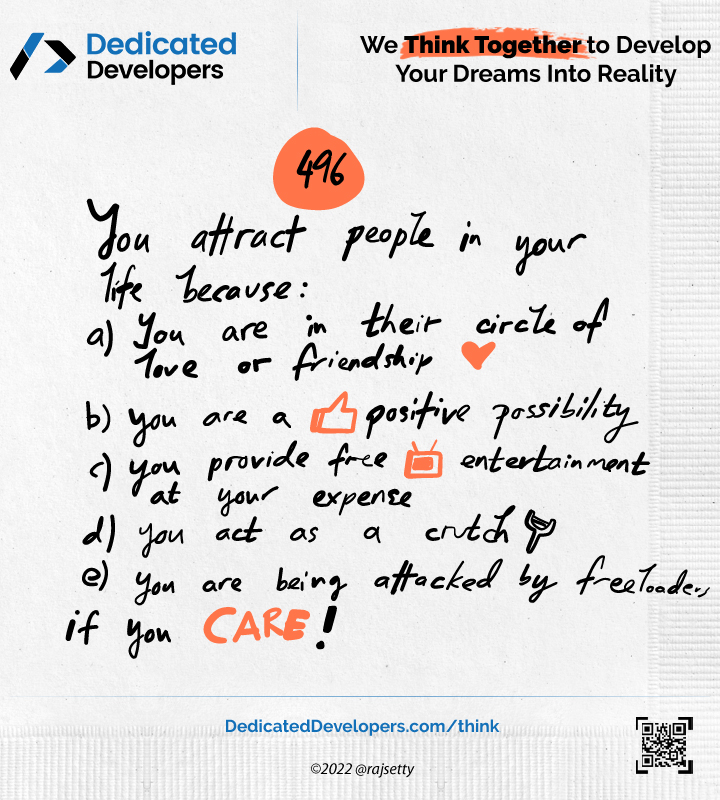 Dedicated
Developers
We Think Together to Develop
Your Dreams Into Reality
496
You attract people in your
life because:
a) You are in their circle of
love or friendship
b) you are a positive possibility
c) you provide free entertainment
at your expense
d) you act as a crutch
e) you are being attacked by freeloaders
if you CARE!
DedicatedDevelopers.com/think
©2022 @rajsetty